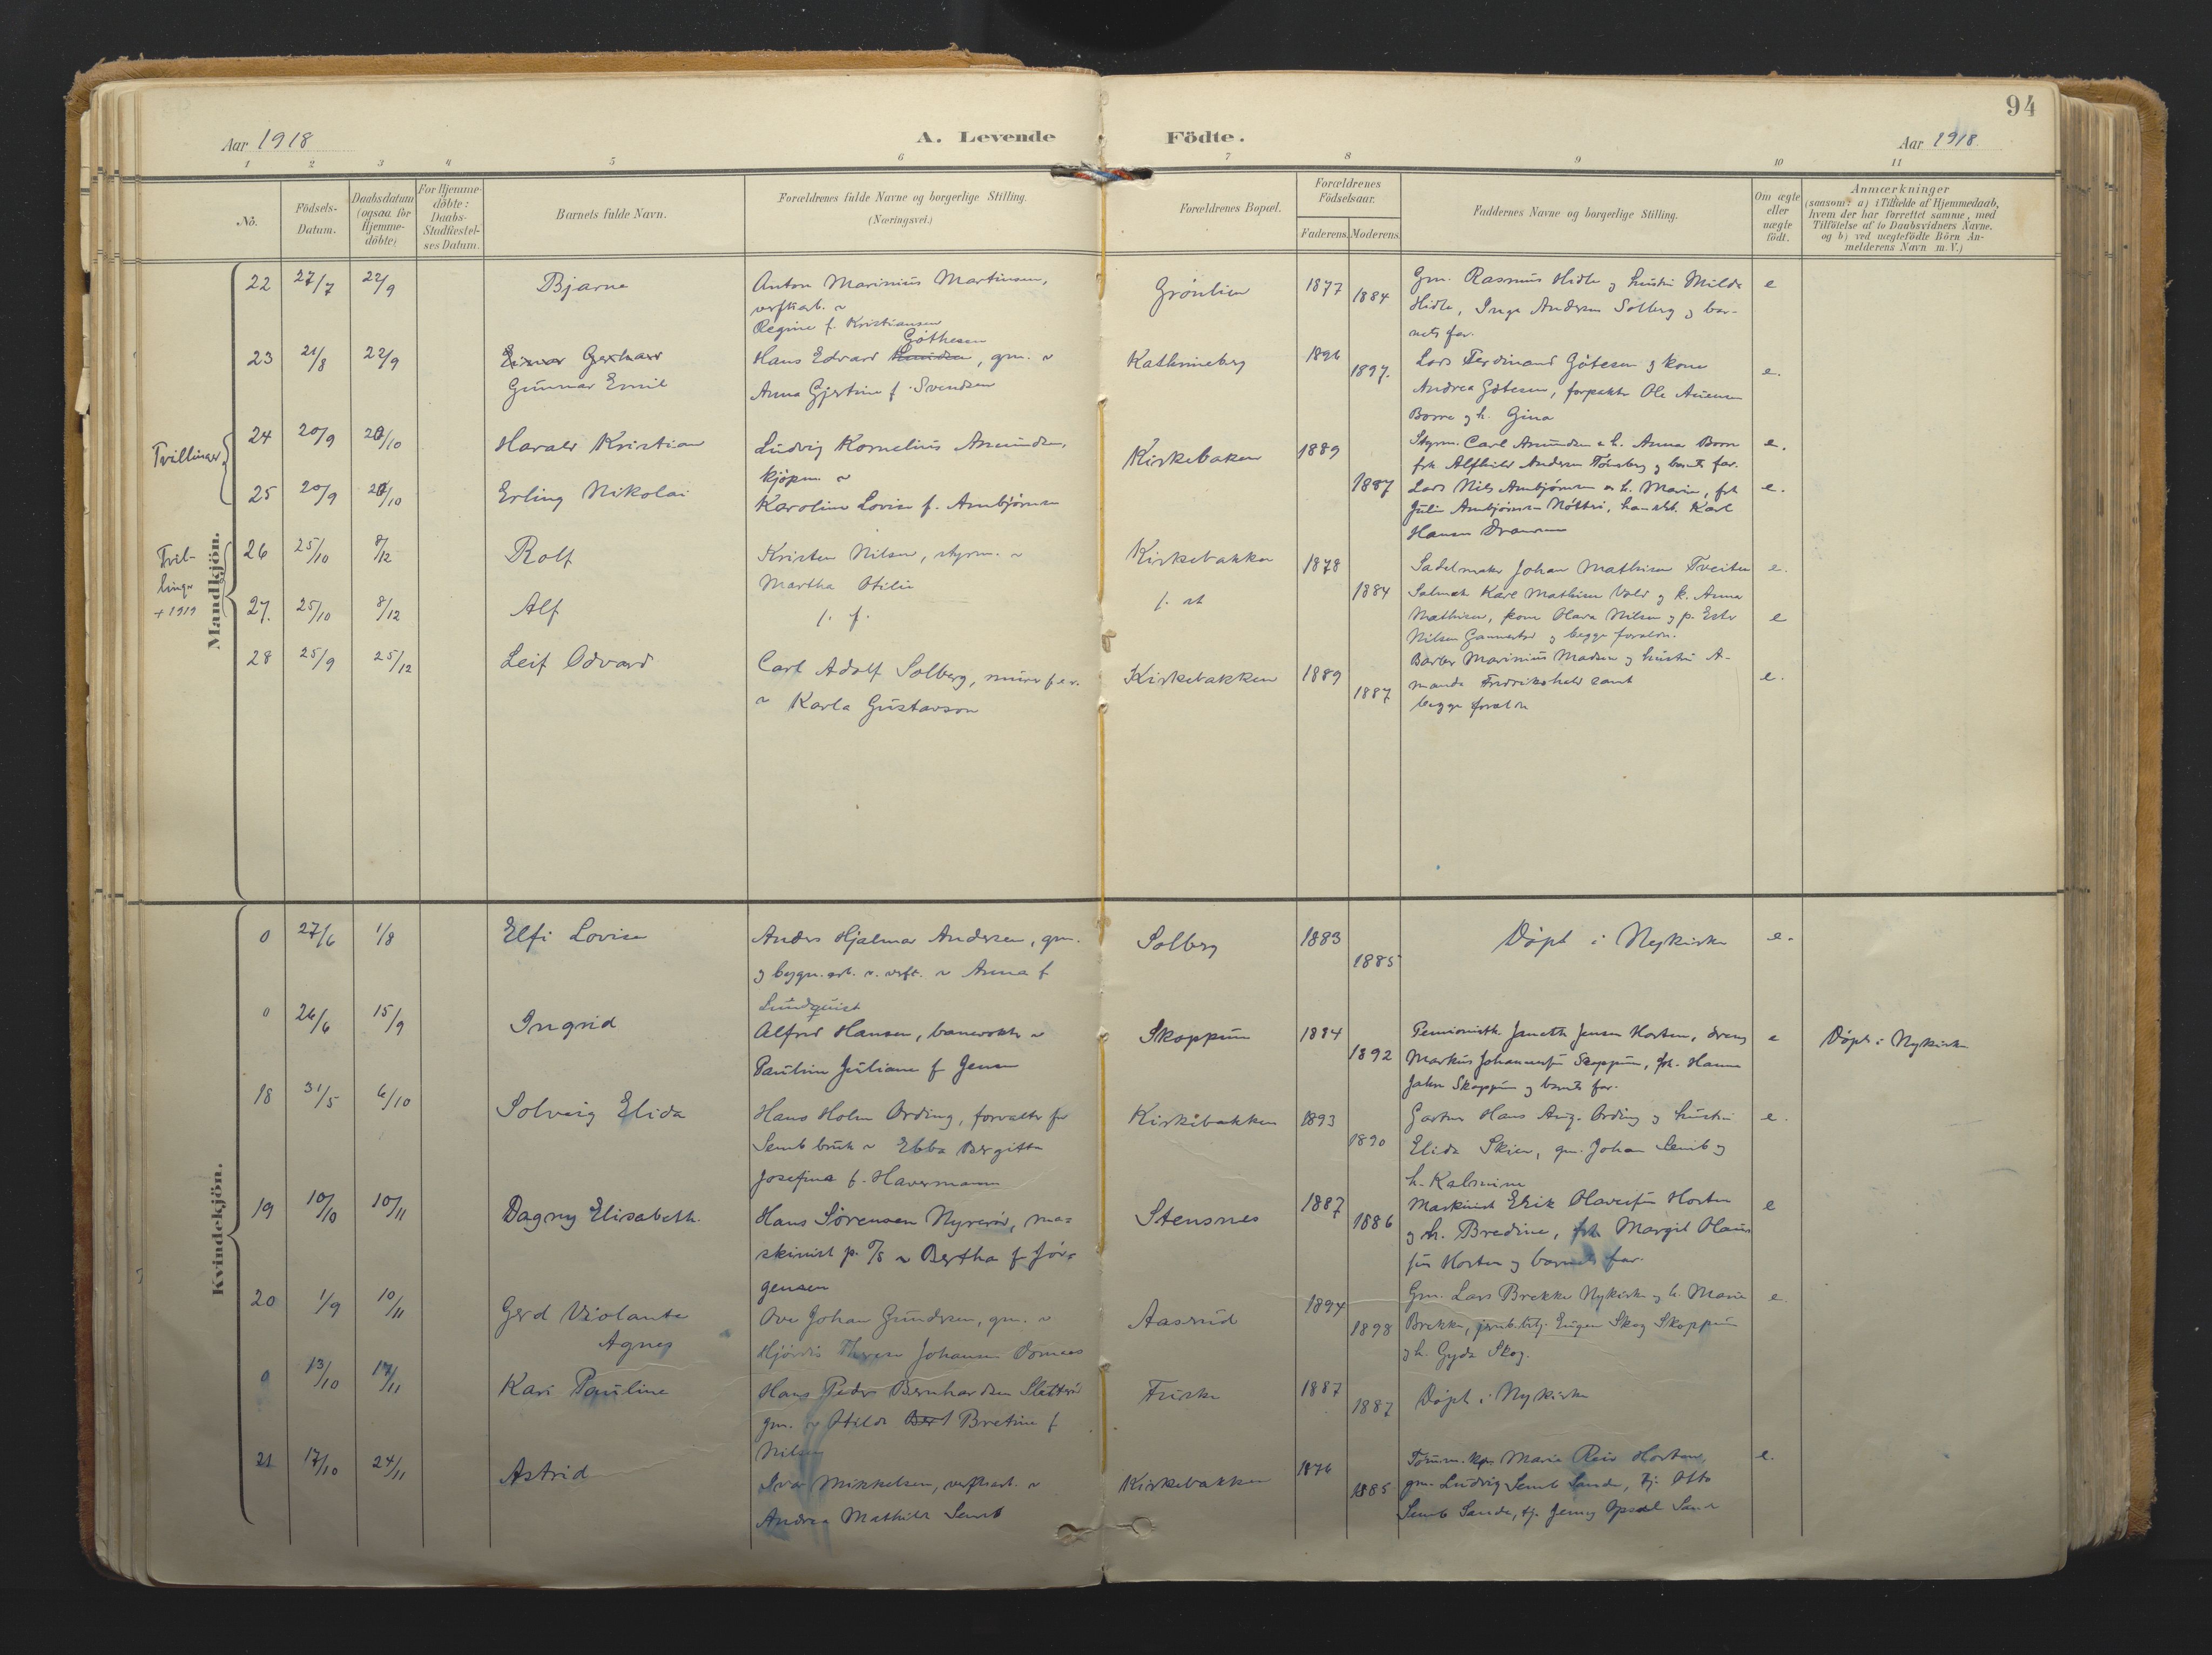 94
Aar 1918 A. Levende Födte. Aar 1918
1 2 3 4 5 6 7 8 9 10 11
No.
Födsels-
Datum.
Daabsdatum
(ogsaa for
Hjemme-
döbte)
For Hjemme-
döbte:
Daabs-
Stadfæstel-
ses Datum.
Barnets fulde Navn.
Forældrenes fulde Navne og borgerlige Stilling.
(Næringsvei.)
Forældrenes Bopæl.
Forældrenes
Födselsaar.
Faderens. Moderens.
Faddernes Navne og borgerlige Stilling.
Om ægte
eller
uægte
födt.
Anmærkninger
(saasom: a) i Tilfælde af Hjemmedaab,
hvem der har forrettet samme, med
Tilföielse af to Daabsvidners Navne.
og b) ved uægtefödte Börn An-
melderens Navn m. V.)
Mandkjön.
22 27/7 22/9 Bjarne
Anton Marinius Martinsen,
verftsarb. ~
Regine f. Kristiansen
Grönlien 1877 1884
Gm. Rasmus Hidle g hustru Milda
Hidle, Inga Andersen Solberg g bar-
nets far.
e
23 21/8 22/9 Einar Gerhard
Gunnar Emil
Göthesen
Hans Edvard, gm. ~
Anna Gjertine f. Svendsen
Kathrineberg 1896 1897.
Lars Ferdinand Götesen g kone
Andrea Götesen, forpakter Ole
Borre g h. Gina
e.
Tvillinger
24 20/9 20/10 Harald Kristian
Ludvig Kornelius Amundsen,
kjöpm. ~
Karoline Lovise f. Arnbjörnsen
Kirkebaken 1889 1887
Styrm. Carl Amundsen g h. Anna Borre
frk. Alfhild Andersen Tönsberg g barnets far.
e.
25 20/9 20/10 Erling Nikolai
Lars Nils Arnbjörnsen g h. Marie, frk
Julie Arnbjörnsen Nötterö, Karl
Hansen Drammen
e.
Tvil-
linger
+ 1919
26 25/10 8/12 Rolf
Kristen Nilsen, styrm. ~
Martha Otilie
Kirkebakken 1878 1884
Sadelmaker Johan Mathisen Tveiten
e.
27. 25/10 8/12 Alf
Salmak. Karl Mathisen Vold g k. Anna
Mathisen, kone Hara Nilsen g p. Ester
Nilsen g begge foreldre.
e
28 25/9 25/12 Leif Odvard
Carl Adolf Solberg, murer f.e.v.
~ Karla Gustavson
Kirkebakken 1889 1887
Barber Marinius Madsen g hustru A-
manda Fredrikshald samt
begge foreldre
e.
Kvindekjön.
0 27/6 1/8 Elfi Lovise
Anders Hjalmar Andersen, gm.
g bygn. arb. v. verft. ~ Anna f
Lundquist
Solberg 1883 1885
Döpt i Nykirke e.
0 26/6 15/9 Ingrid
Alfred Hansen, banevokter ~
Pauline Juliane f Jensen
Skoppum 1884 1892
Pensionistk. Janette Jensen Horten, dreng
Markus Johannesen Skoppum, frk. Hanna
Jahre Skoppum g barnets far.
e Döpt i Nykirke
18 31/5 6/10 Solveig Elida
Hans Holm Ording, forvalter for
Semb bruk ~ Ebba Bergitte
Josefine f. Havermann
Kirkebakken 1893 1890
Gartner Hans Aug. Ording g hustru
Elida Skien, gm. Johan Semb g
h. Kalmine
e.
19 10/10 10/11 Dagny Elisabeth.
Hans Sörensen Nyreröd, ma-
skinist p. o/s ~ Bertha f Jör-
gensen
Stensnes 1887 1886
Maskinist Erik Olavesen Horten
g h. Bredine, frk Margit Olav-
sen Horten g barnets far.
e
20 1/9 10/11 Gerd Violante
Agnes
Ove Johan Gundersen, gm. ~
Hjördis Therese Johansen
Aasrud 1894 1898
Gm. Lars Brekke Nykirke g h. Marie
Brekke, jernb.betj. Eugen Skog Skoppum
g h. Gyda Skog.
e.
0 13/10 17/11 Kari Pauline
Hans Peder Bernhardsen Sletteröd
gm. ~ Otilde Bert Bretine f
Nilsen
Fuske 1887 1887
Döpt i Nykirke
21 17/10 24/11 Astrid
Ivar Mikkelsen, verftsarb. ~
Andrea Mathilde Semb
Kirkebakken 1876 1885
Tömm. Marie Reis Horten,
gm. Ludvig Semb Sande, tj. Otto
Semb Sande, tj. Jenny Opsal Sande
e.